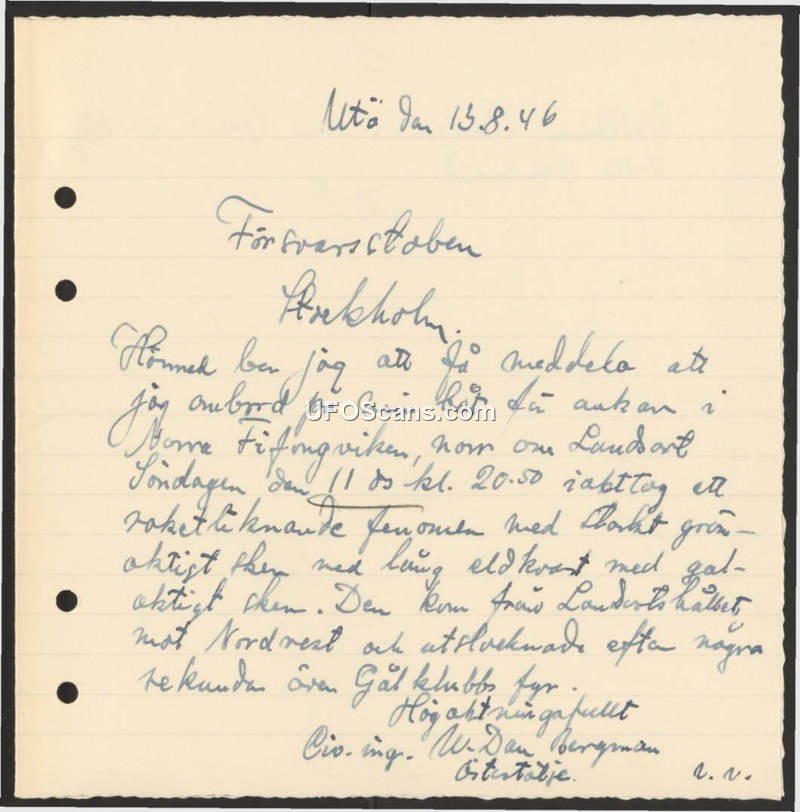 Utö den 13.8.46
Försvarsstaben
Stockholm.
Härmed ber jag att få meddela att
jag ombord på min båt för ankar i
Norra Fifongviken, norr om Landsort
Söndagen den 11 ds kl. 20.50 iakttog ett
raketliknande fenomen med starkt grön-
aktigt sken med lång eldkvast med gul-
aktigt sken. Den kom från Landsortshållet
mot Nordvest och utslocknade efter några
sekunder över Gålklubbs fyr.
Högaktningsfullt
Civ. ing. W. Dan Bergman
v.v.
UFOScans.com